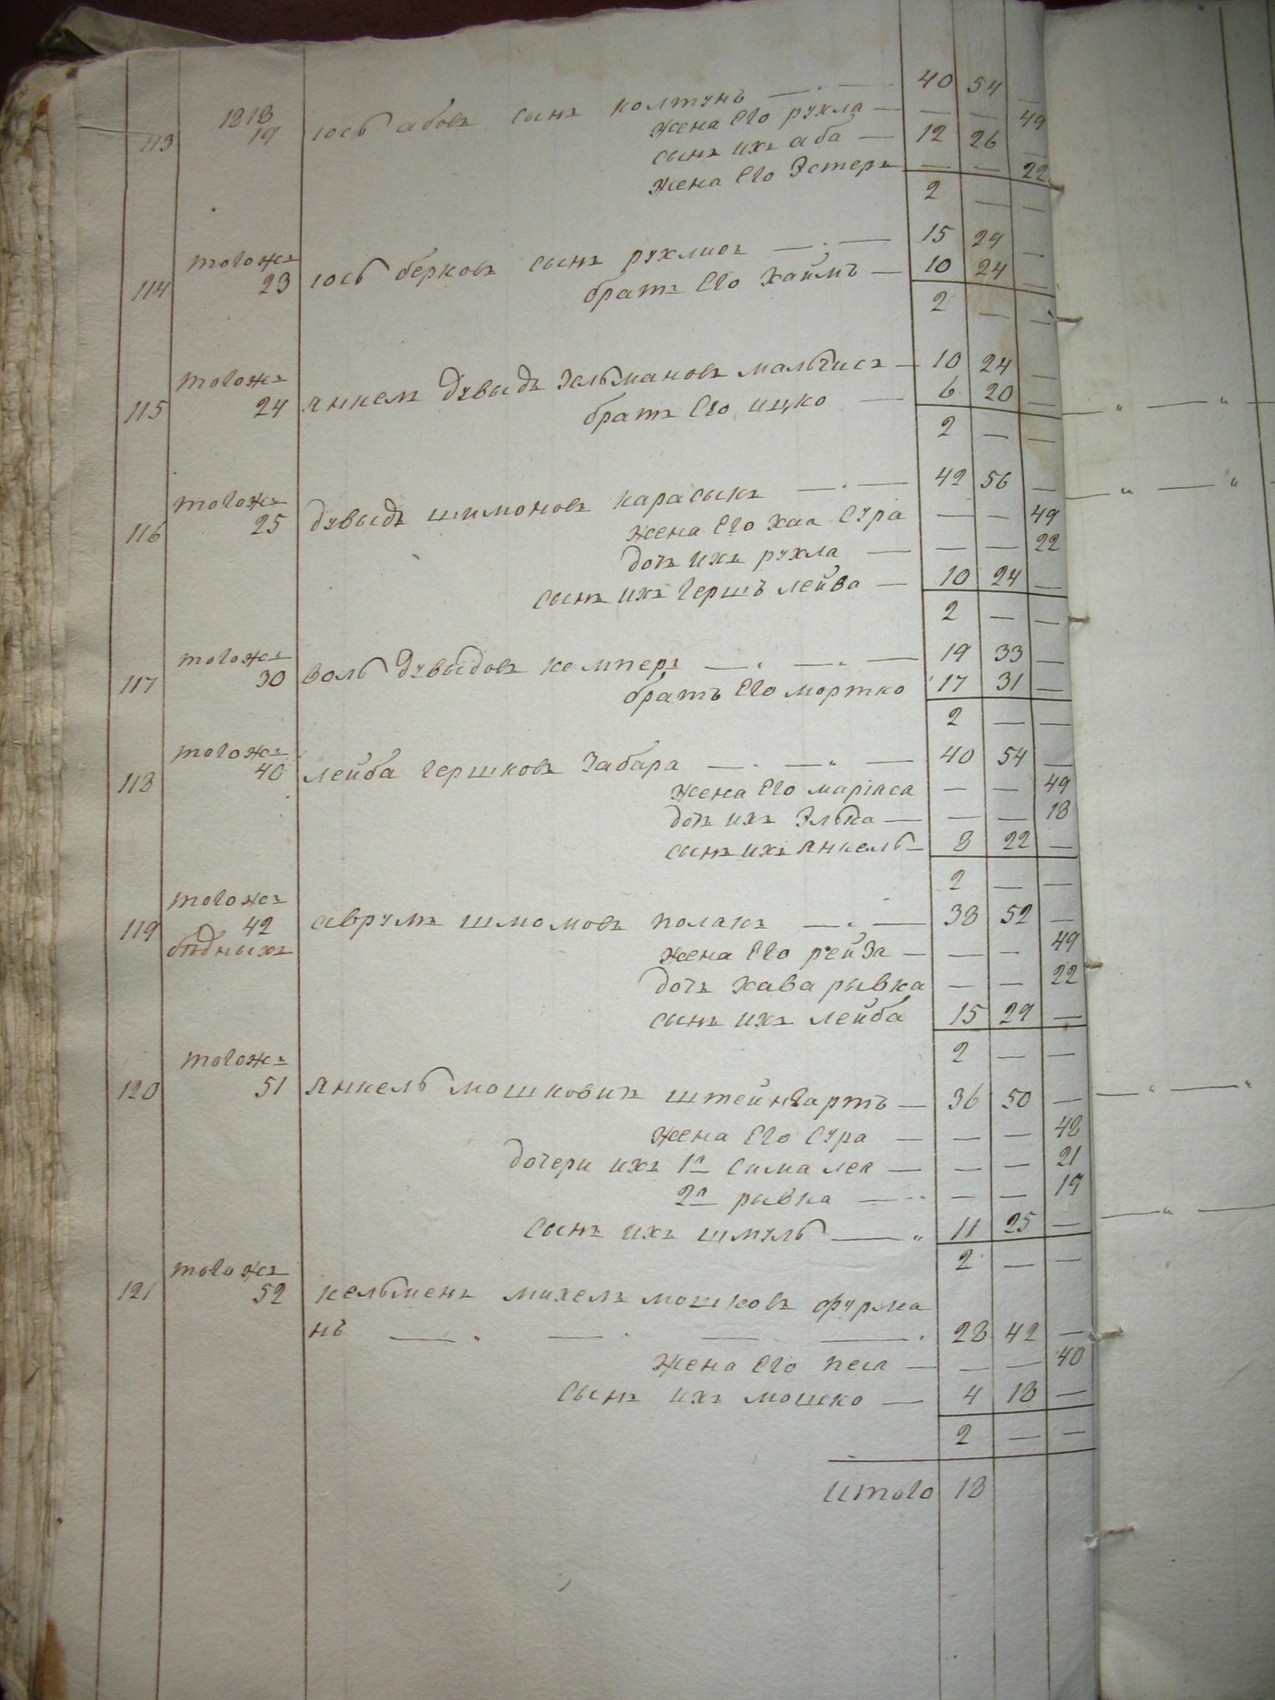 1818 40 54 —
113 19 Iось абовъ сынъ колтунъ — . —
жена его рухла — — — 49
сынъ ихъ аба — 12 26 —
жена его Эстеръ — — — 22
2 — —
тогожъ
114 23 Iось берковъ сынъ рухлисъ — . — 15 29 —
братъ его хаимъ — 10 24 —
2 — —
тогожъ
115 24 янкель дувыдъ Зельмановъ — 10 24 —
братъ его ицко — 6 20 —
2 — —
тогожъ
116 25 дувыдъ шимоновъ карасыкъ — . — 42 56 —
жена его хая сура — — 49
дочь ихъ рухла — — — 22
сынъ ихъ гершъ лейба — 10 24 —
2 — —
тогожъ
117 30 воль дувыдовъ кемперъ — . — . — 19 33 —
братъ его мортко 17 31 —
2 — —
тогожъ
118 40 лейба гершковъ Забара — . — „ — 40 54 —
жена его маріаса — — 49
дочь ихъ Элька — — — 18
сынъ ихъ янкель — 8 22 —
2 — —
тогожъ
119 42 аврумъ шмомовъ полакъ — . — 38 52 —
бѣдныхъ
жена его рейза — — — 49
дочь хава рывка — — 22
сынъ ихъ лейба 15 29 —
2 — —
тогожъ
120 51 янкель мошковичъ штейнгартъ — 36 50 —
жена его сура — — — 48
дочери ихъ 1я сима леа — — — 21
2я рывка — — — 19
сынъ ихъ шмуль — „ 11 25 —
2 — —
тогожъ
121 52 кельменъ михель мошковъ фурма
нъ — . — . — — . 28 42 —
жена его песа — — — 40
сынъ ихъ мошко — 4 18 —
2 — —
Итого 18